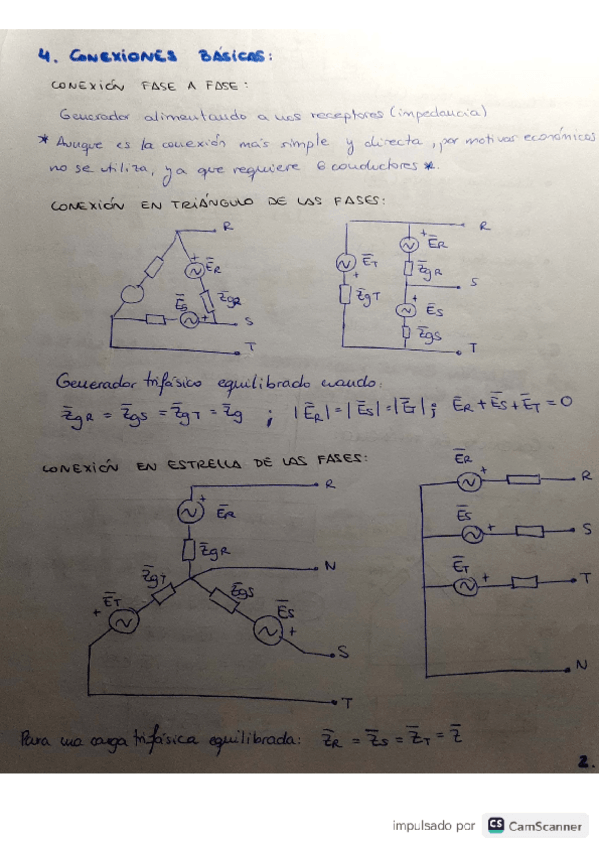 4. CONEXIONES BÁSICAS:
CONEXIÓN FASE A FASE:
Generador alimentando a unos receptores (impedancia)
* Aunque es la conexión más simple y directa, por motivos económicos
no se utiliza, ya que requiere 6 conductores *.
CONEXIÓN EN TRIÁNGULO DE LAS FASES:
R
+ E̅R
Z̅gR
E̅S
+ S
T
R
+ E̅R
E̅T
+
Z̅gR
Z̅gT
S
+
E̅S
Z̅gS
T
Generador trifásico equilibrado cuando:
Z̅gR = Z̅gS = Z̅gT = Z̅g ; |E̅R| = |E̅S| = |E̅T| ; E̅R + E̅S + E̅T = 0
CONEXIÓN EN ESTRELLA DE LAS FASES:
R
+
E̅R
Z̅gR
N
Z̅gT
Z̅gS
E̅T
+
E̅S
+
S
T
E̅R
+
R
E̅S
+
S
E̅T
+
T
N
Para una carga trifásica equilibrada: Z̅R = Z̅S = Z̅T = Z̅
2.
impulsado por CS CamScanner